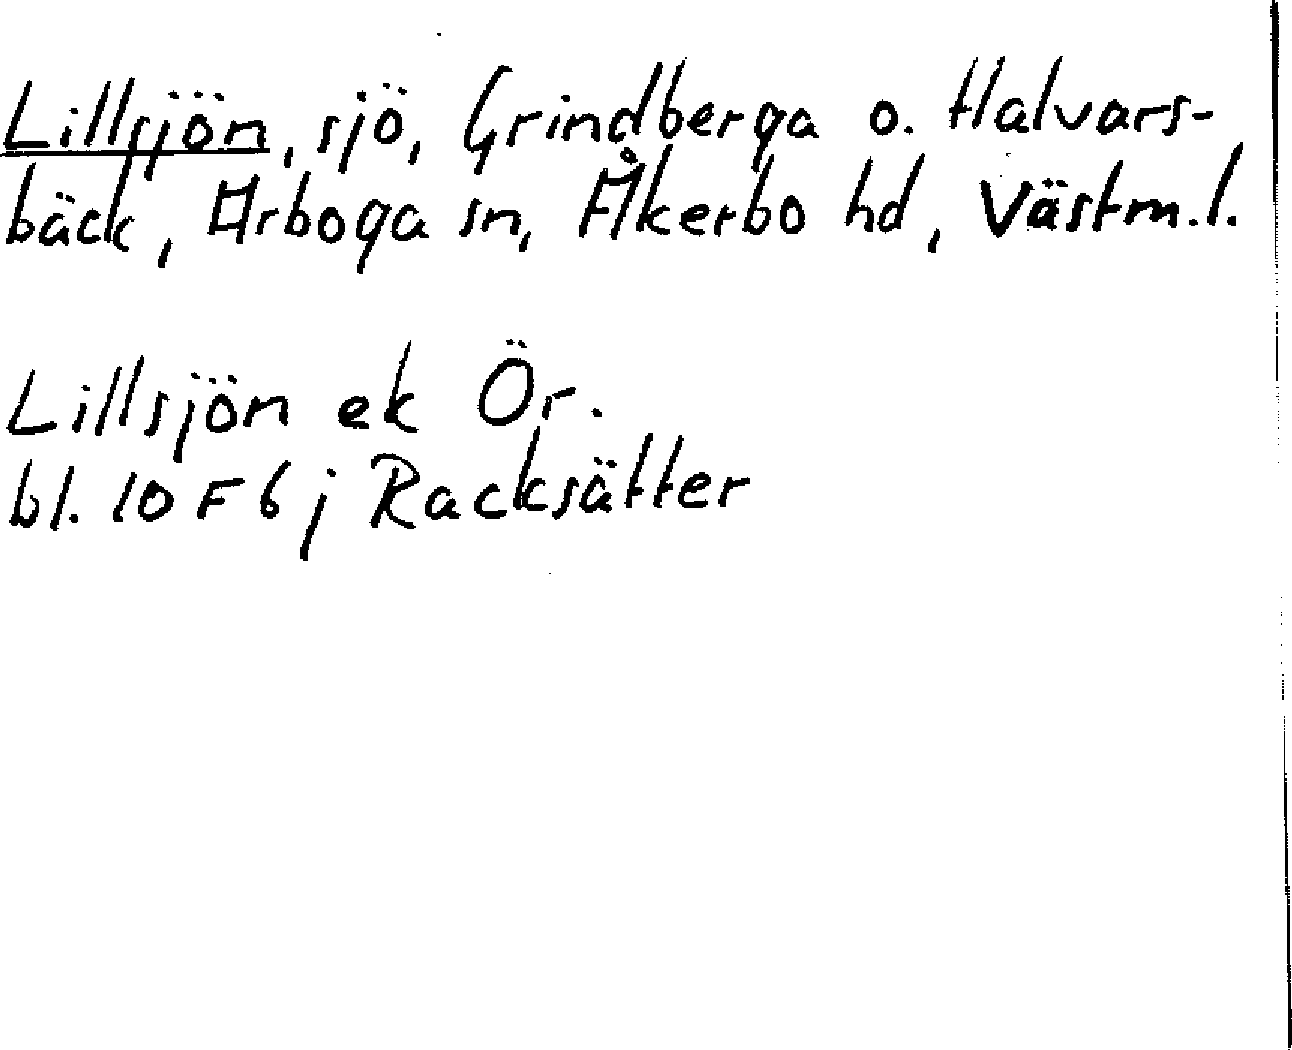 Lillsjön, sjö, Grindberga o. Halvars-
bäck, Arboga sn, Åkerbo hd, Västm.l.
Lillsjön ek Ör.
bl. 10F6j Racksätter